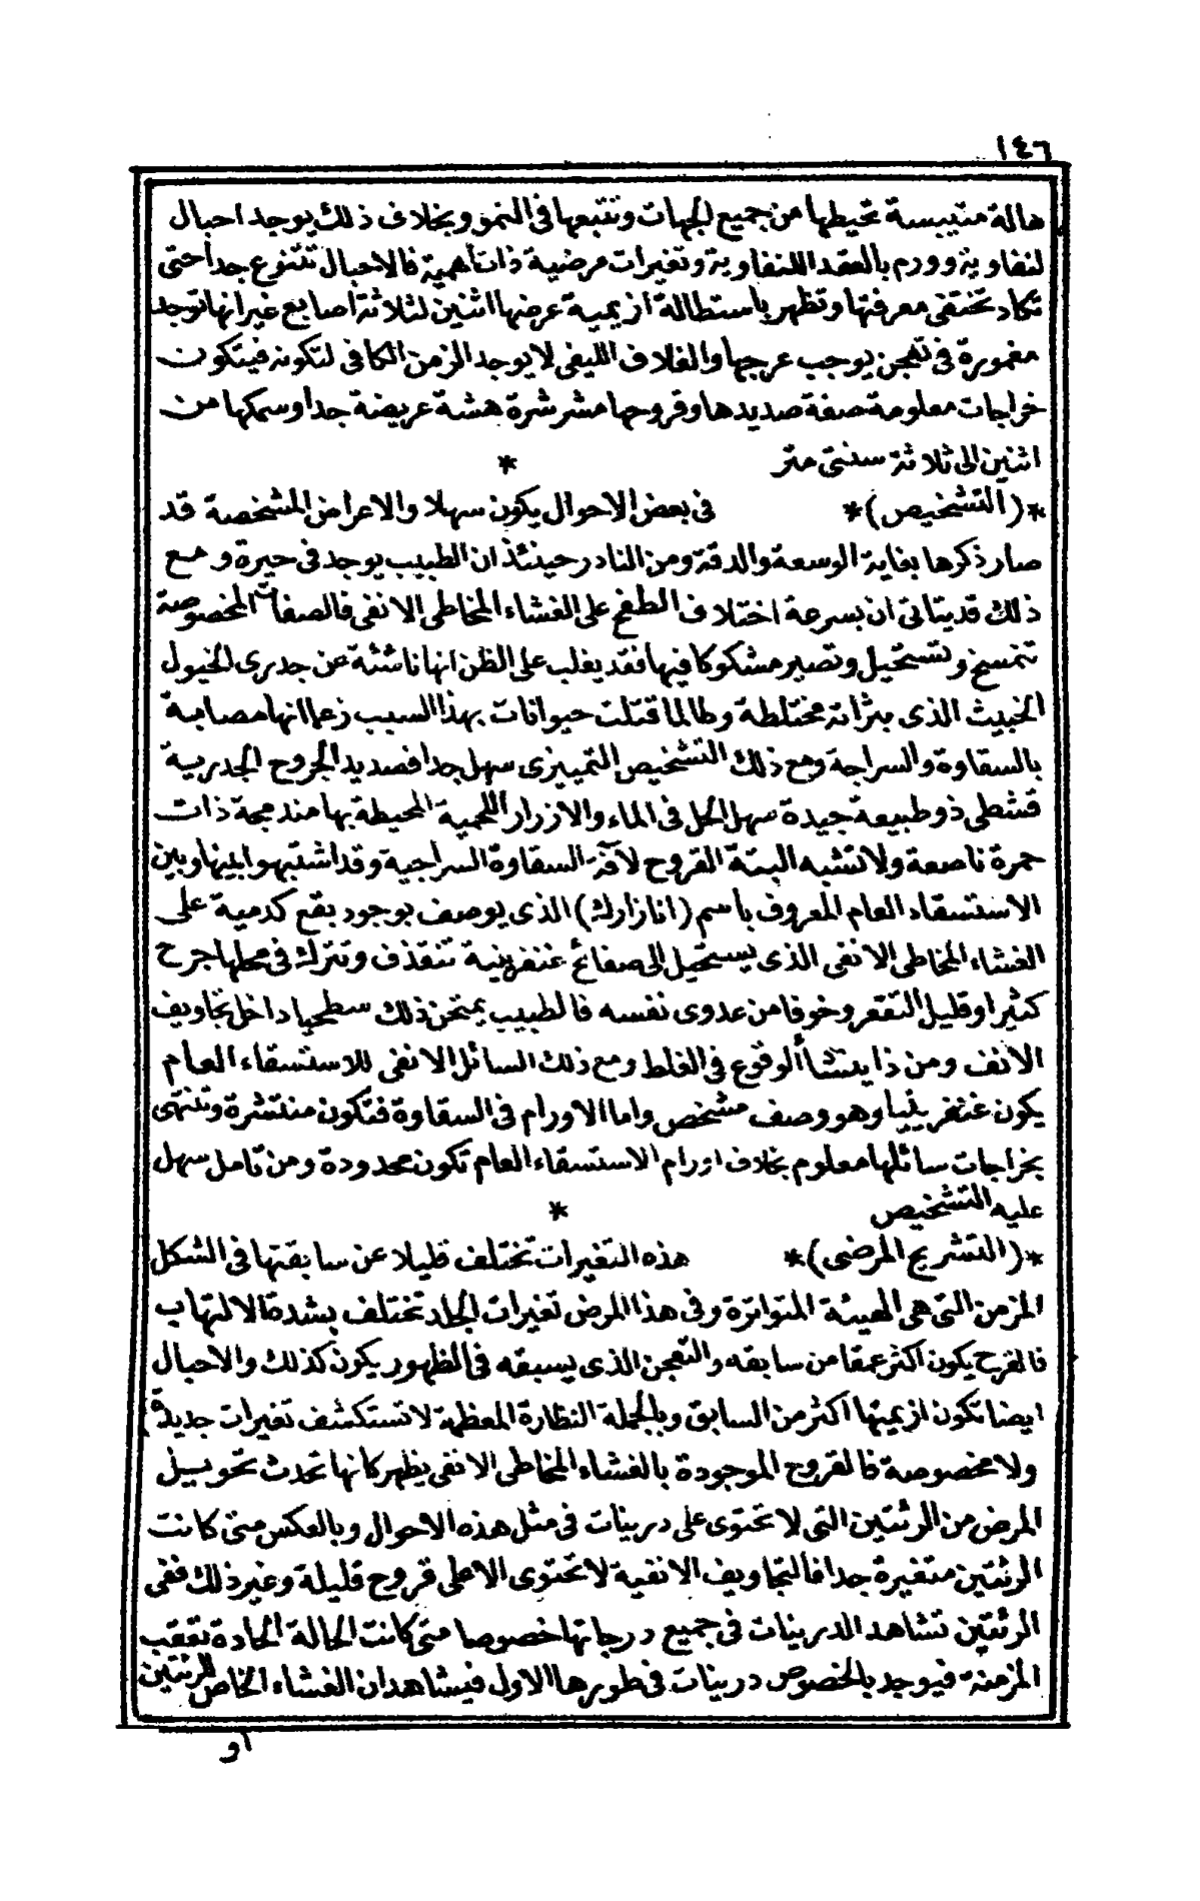 ١٤٦
هالة متيبسة تحيطها من جميع الجهات وتتبعها فى النمو وبخلاف ذلك يوجد احبال
لنفاوية وورم بالعقد اللنفاوية وتغيرات مرضية ذات اهمية فالاحبال تتنوع جدا حتى
تكاد تختفى معرفتها وتظهر باستطالة ازيمية عرضها اثنين لثلاثة اصابع غير انها توجد
مغمورة فى تعجن يوجب عرجها والغلاف الليفى لا يوجد الزمن الكافى لتكونه فيتكون
خراجات معلومة صفة صديدها وقروحها مشرشرة هشة عريضة جدا وسمكها من
اثنين الى ثلاثة سنتى متر *
*(التشخيص)* فى بعض الاحوال يكون سهلا والاعراض المشخصة قد
صار ذكرها بغاية الوسعة والدقة ومن النادر حينئذ ان الطبيب يوجد فى حيرة ومع
ذلك قد يتاتى ان بسرعة اختلاف الطفح على الغشاء المخاطى الانفى فالصفات المخصوصة
تنمسخ وتستحيل وتصير مشكوكا فيها فقد يغلب على الظن انها ناشئة عن جدرى الخيول
الخبيث الذى بثراته مختلطة وطالما قتلت حيوانات بهذا السبب زعما انها مصابة
بالسقاوة والسراجة ومع ذلك التشخيص التمييزى سهل جدا فصديد الجروح الجدرية
قشطى ذو طبيعة جيدة سهل الحل فى الماء والازرار اللحمية المحيطة بها مندمجة ذات
حمرة ناصعة ولا تشبه البتة القروح لآفة السقاوة السراجية وقد اشتبهوا بينها وبين
الاستسقاء العام المعروف باسم (انازارك) الذى يوصف بوجود بقع كدمية على
الغشاء المخاطى الانفى الذى يستحيل الى صفائح غنغرينية تنقذف وتترك فى محلها جرح
كثيرا وقليل التقعر وخوفا من عدوى نفسه فالطبيب يمتحن ذلك سطحيا داخل تجاويف
الانف ومن ذا ينشأ الوقوع فى الغلط ومع ذلك السائل الانفى للاستسقاء العام
يكون غنغرينيا وهو وصف مشخص واما الاورام فى السقاوة فتكون منتشرة وتنتهى
بخراجات سائلها معلوم بخلاف اورام الاستسقاء العام تكون محدودة ومن تامل سهل
عليه التشخيص *
*(التشريح المرضى)* هذه التغيرات تختلف قليلا عن سابقتها فى الشكل
المزمن التى هى الهيئة المتواترة وفى هذا المرض تغيرات الجلد تختلف بشدة الالتهاب
فالقرح يكون اكثر عمقا من سابقه والتعجن الذى يسبقه فى الظهور يكون كذلك والاحبال
ايضا تكون ازيميتها اكثر من السابق وبالجملة النظارة المعظمة لا تستكشف تغيرات جديدة
ولا مخصوصة فالقروح الموجودة بالغشاء المخاطى الانفى يظهر كانها تحدث تحويل
المرض من الرئتين التى لا تحتوى على درينات فى مثل هذه الاحوال وبالعكس متى كانت
الرئتين متغيرة جدا فالتجاويف الانفية لا تحتوى الا على قروح قليلة وغير ذلك ففى
الرئتين تشاهد الدرينات فى جميع درجاتها خصوصا متى كانت الحالة الحادة تعقب
المزمنة فيوجد بالخصوص درينات فى طورها الاول فيشاهد ان الغشاء الخاص للرئتين
او